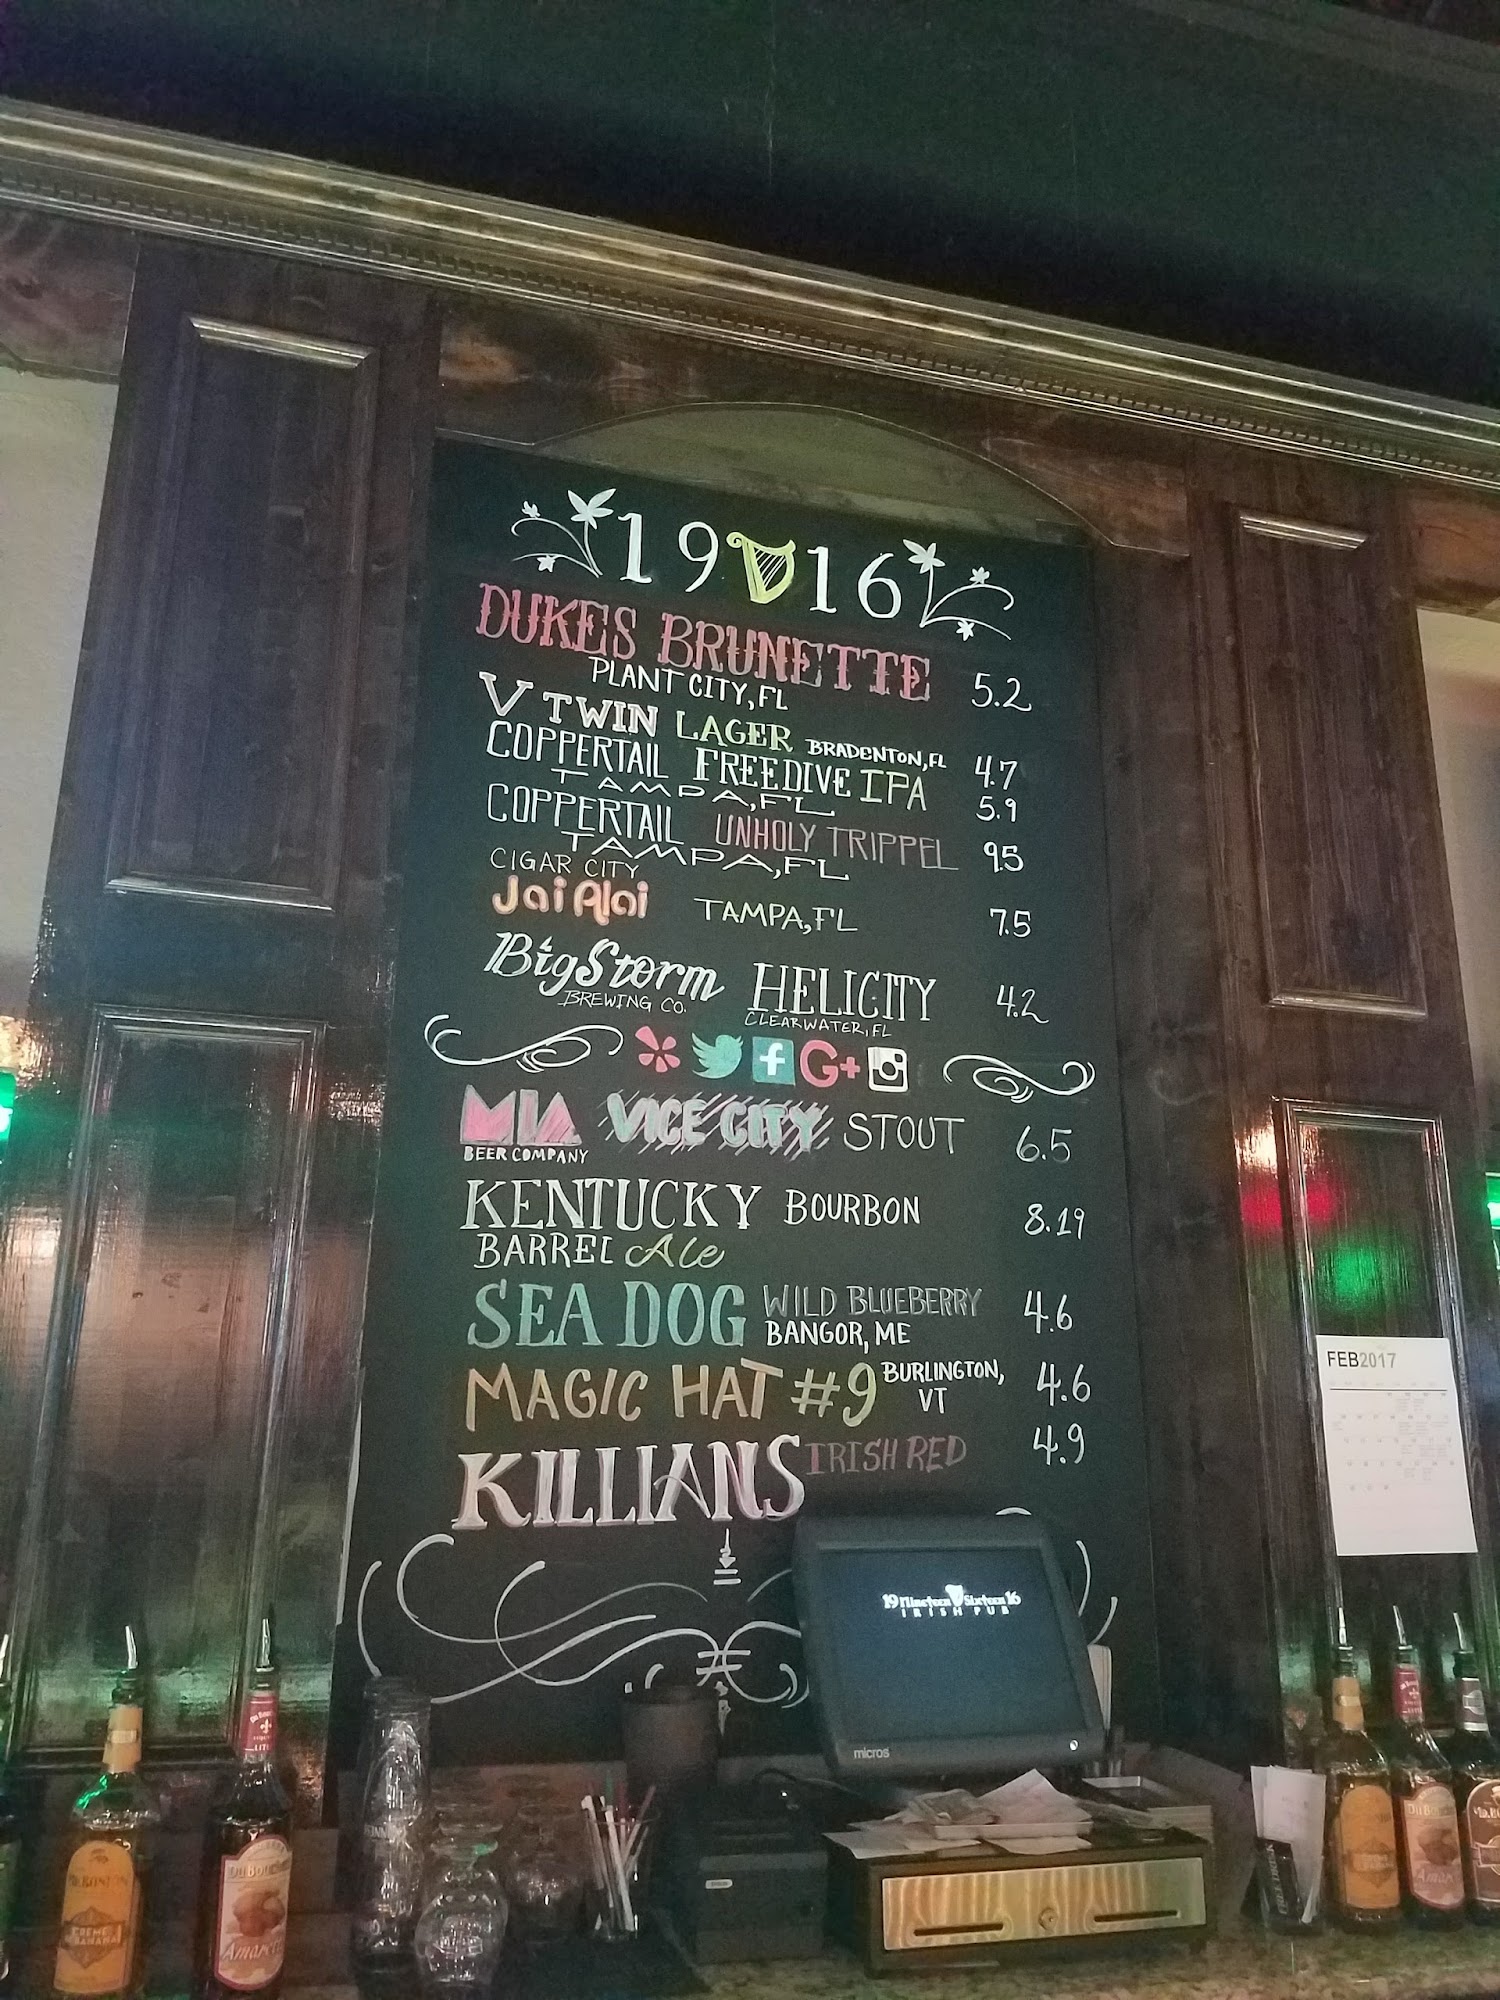 19 16
DUKES BRUNETTE 5.2
PLANT CITY, FL
V TWIN LAGER BRADENTON, FL 4.7
COPPERTAIL FREEDIVE IPA 5.9
TAMPA, FL
COPPERTAIL UNHOLY TRIPPEL 9.5
TAMPA, FL
CIGAR CITY
Jai Alai TAMPA, FL 7.5
Big Storm HELICITY 4.2
BREWING CO. CLEARWATER, FL
f G+
MIA VICE CITY STOUT 6.5
BEER COMPANY
KENTUCKY BOURBON 8.19
BARREL Ale
SEA DOG WILD BLUEBERRY 4.6
BANGOR, ME
MAGIC HAT #9 BURLINGTON, 4.6
VT
KILLIANS IRISH RED 4.9
FEB2017
19 Nineteen Sixteen 16
IRISH PUB
micros
DuBouchett
Amaretto
CREME
BANANA